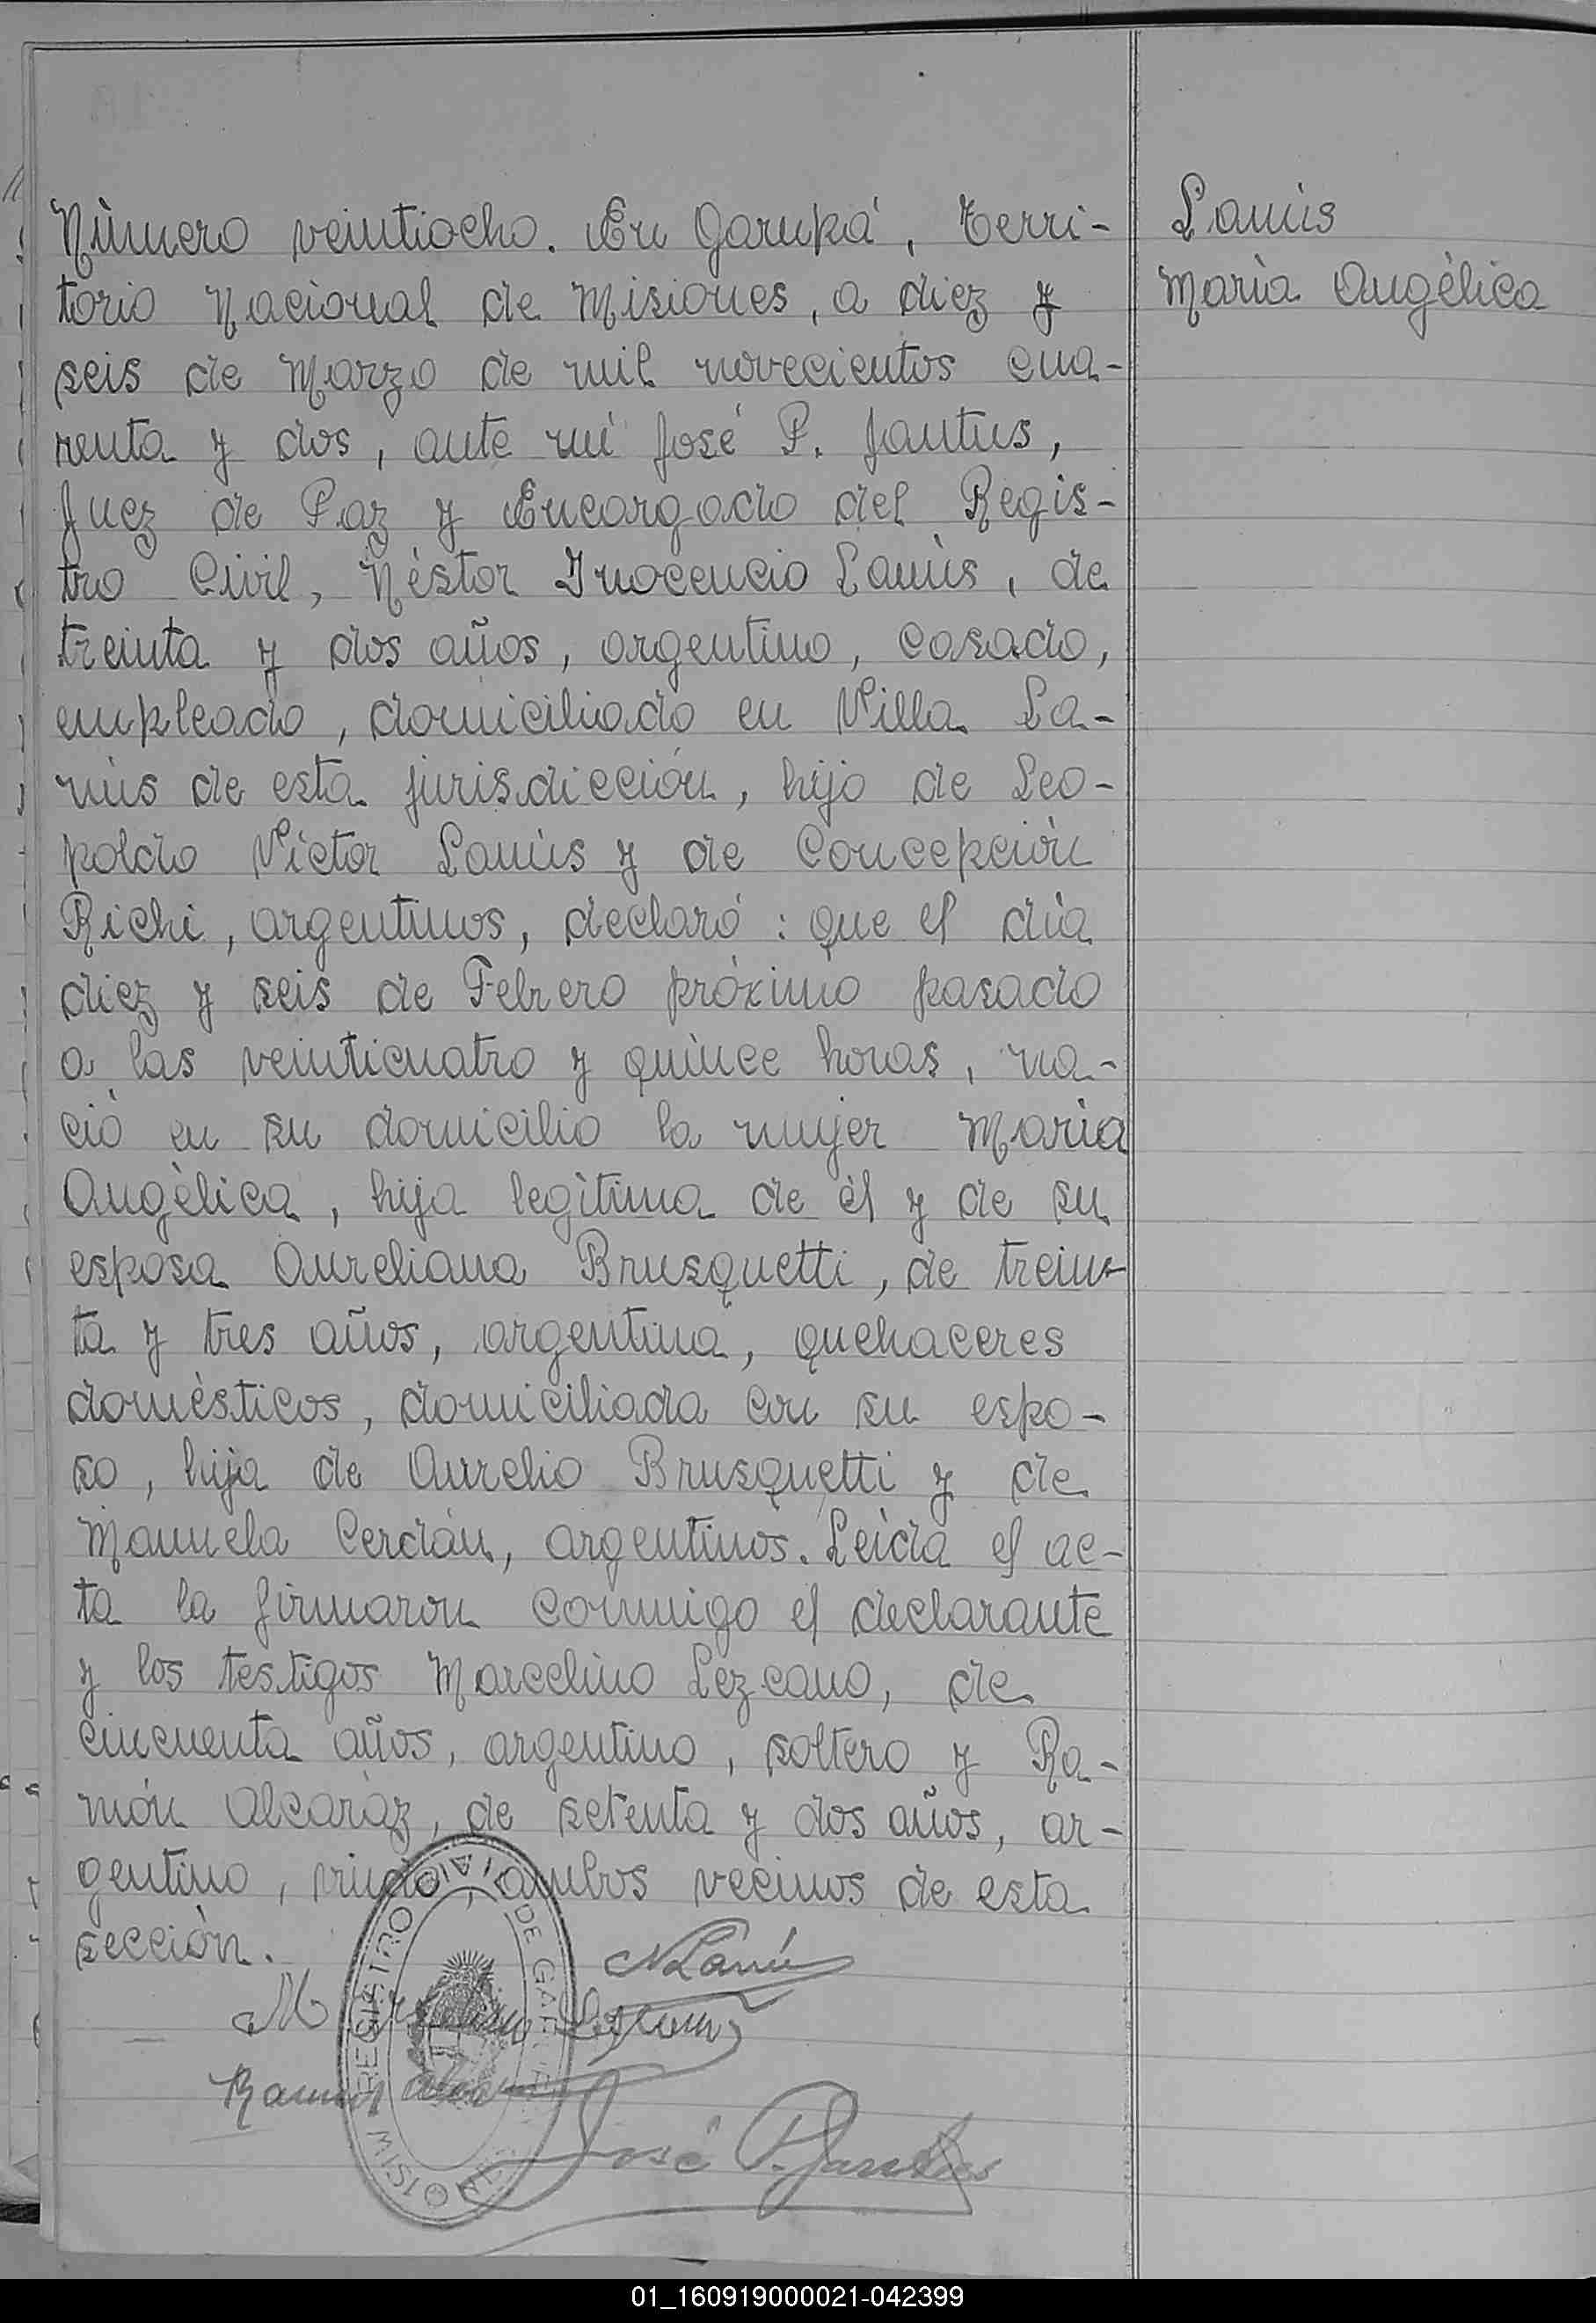 Número veintiocho. En Garupá, Terri-
torio Nacional de Misiones, a diez y
seis de Marzo de mil novecientos cua-
renta y dos, ante mí José P. Jantus,
Juez de Paz y Encargado del Regis-
tro Civil, Néstor Inocencio Lanús, de
treinta y dos años, argentino, casado,
empleado, domiciliado en Villa La-
nús de esta jurisdicción, hijo de Leo-
poldo Víctor Lanús y de Concepción
Richi, argentinos, declaró: que el día
diez y seis de Febrero próximo pasado
a las veinticuatro y quince horas, na-
ció en su domicilio la mujer María
Angélica, hija legítima de él y de su
esposa Aureliana Brusquetti, de trein-
ta y tres años, argentina, quehaceres
domésticos, domiciliada con su espo-
so, hija de Aurelio Brusquetti y de
Manuela Cerdán, argentinos. Leída el ac-
ta la firmaron conmigo el declarante
y los testigos Marcelino Lezcano, de
cincuenta años, argentino, soltero y Ra-
món Alcaráz, de setenta y dos años, ar-
gentino, viudo, ambos vecinos de esta
sección.
Lanús
María Angélica
NLanús
Marcelino Lezcano
Ramon
José P. Jantus
REGISTRO
DE
MISIONES
01_160919000021-042399